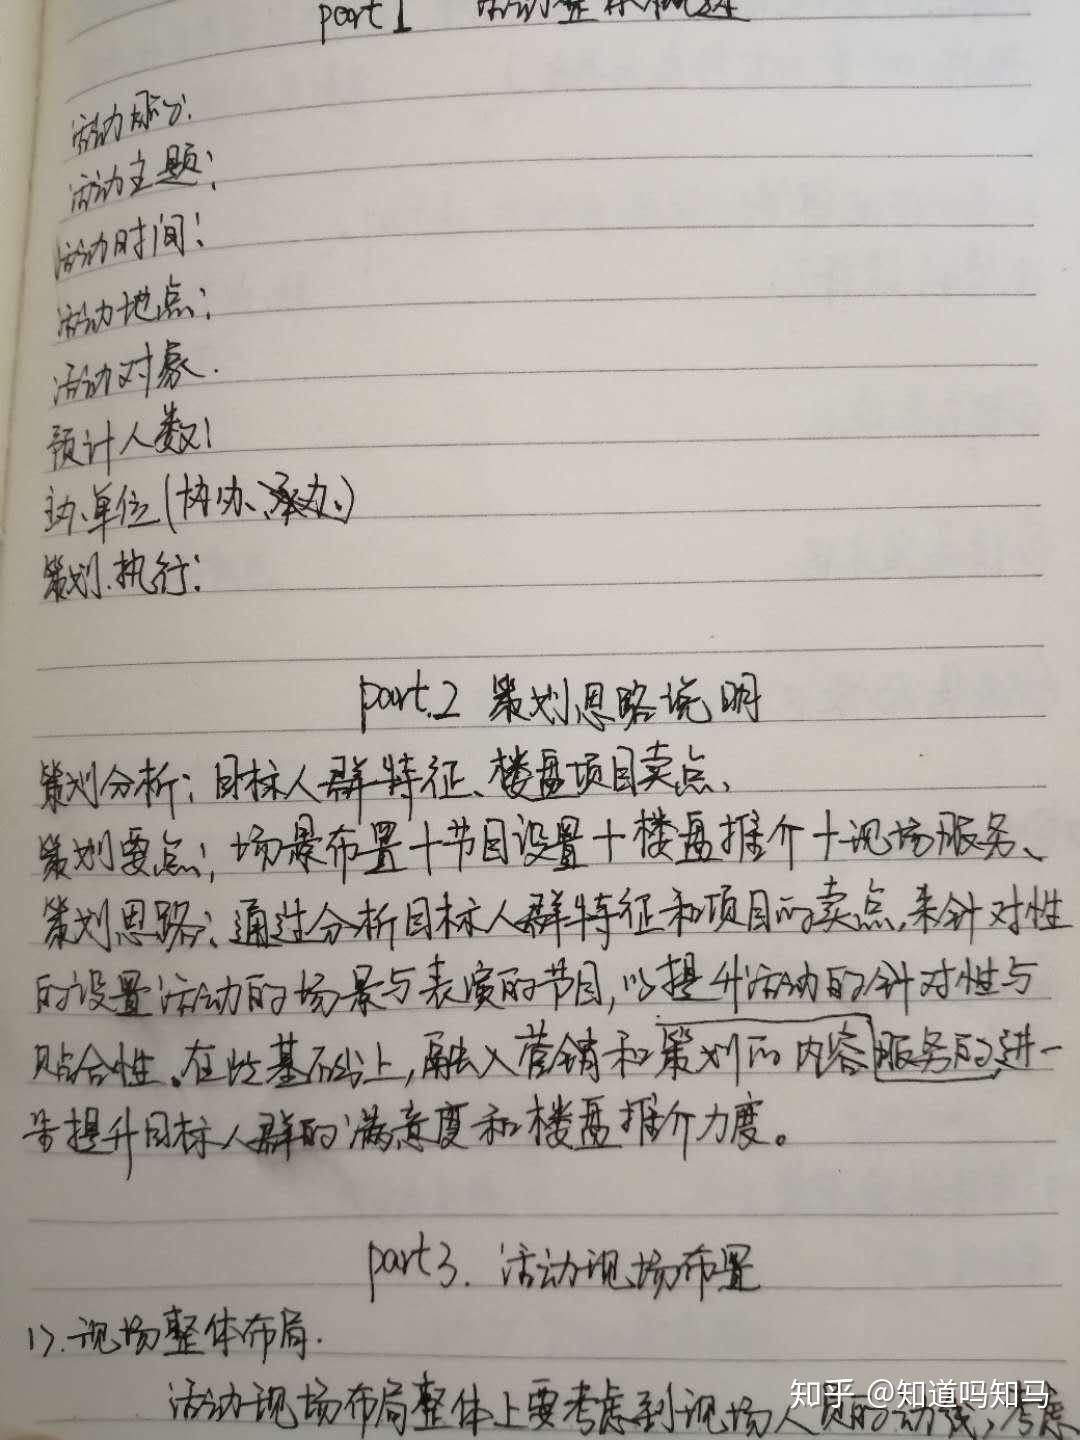 part1 活动整体概述
活动
活动主题：
活动时间：
活动地点：
活动对象.
预计人数：
主办单位(协办、承办)
策划.执行：
part.2 策划思路说明
策划分析：目标人群特征、楼盘项目卖点、
策划要点；场景布置+节目设置+楼盘推介+现场服务、
策划思路：通过分析目标人群特征和项目的卖点,来针对性
的设置活动的场景与表演的节目,以提升活动的针对性与
贴合性。在此基础上,融入营销和策划的内容服务的,进一
步提升目标人群的满意度和楼盘推介力度。
part3. 活动现场布置
1).现场整体布局.
活动现场布局整体上要考虑到现场人员的动线,考虑
知乎 @知道吗知马